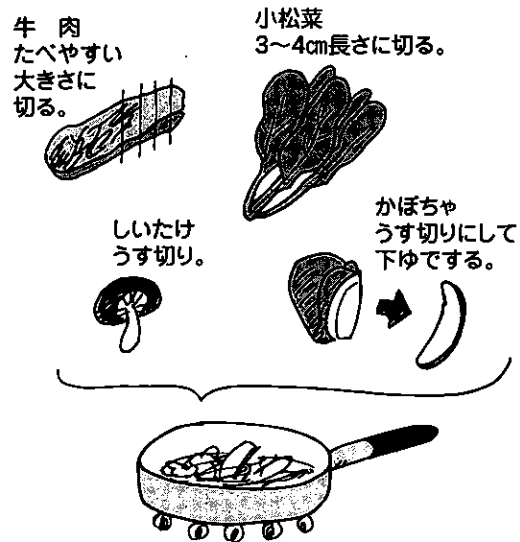 牛 肉
たべやすい
大きさに
切る。
小松菜
3〜4cm長さに切る。
しいたけ
うす切り。
かぼちゃ
うす切りにして
下ゆでする。